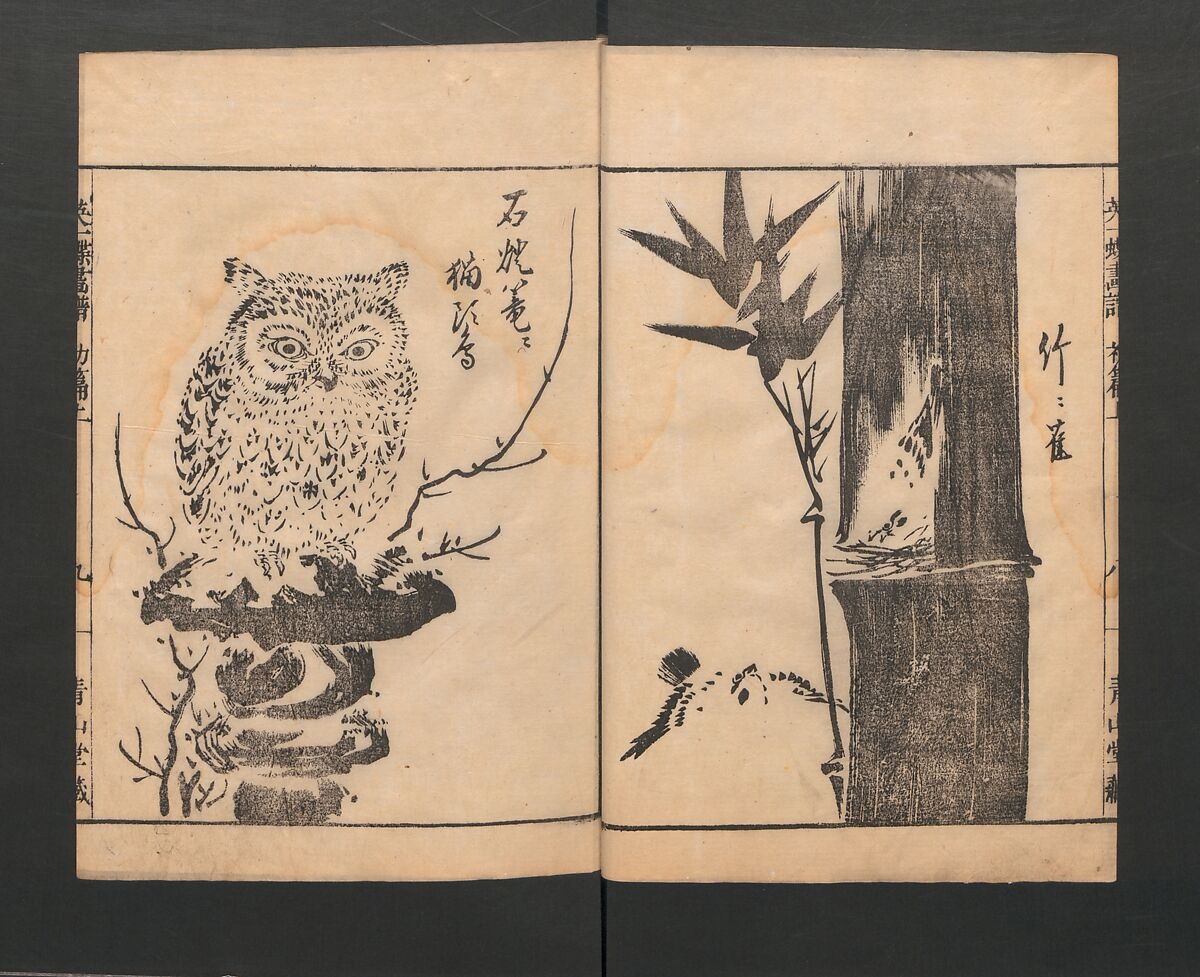 英一蝶畫譜 初篇上 八 青山堂藏
竹ニ雀
石燈篭ニ
猫頭鳥
英一蝶畫譜 初篇上 九 青山堂藏